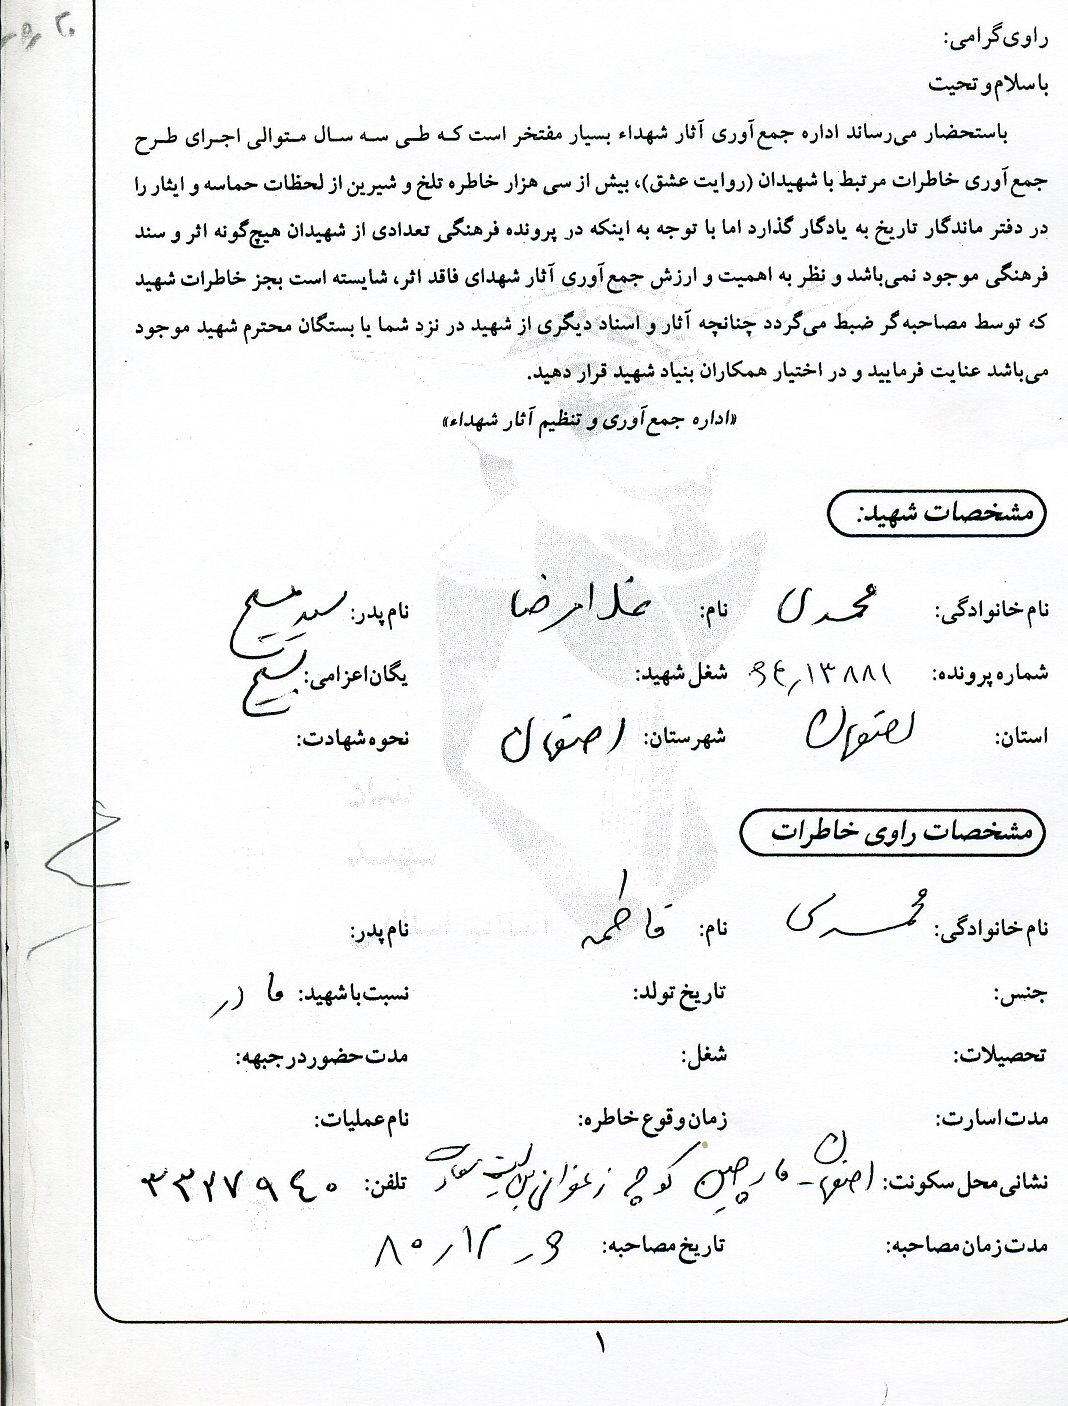 راوی گرامی:
با سلام و تحیت
باستحضار می‌رساند اداره جمع‌آوری آثار شهداء بسیار مفتخر است که طی سه سال متوالی اجرای طرح
جمع‌آوری خاطرات مرتبط با شهیدان (روایت عشق)، بیش از سی هزار خاطره تلخ و شیرین از لحظات حماسه و ایثار را
در دفتر ماندگار تاریخ به یادگار گذارد اما با توجه به اینکه در پرونده فرهنگی تعدادی از شهیدان هیچ‌گونه اثر و سند
فرهنگی موجود نمی‌باشد و نظر به اهمیت و ارزش جمع‌آوری آثار شهدای فاقد اثر، شایسته است بجز خاطرات شهید
که توسط مصاحبه‌گر ضبط می‌گردد چنانچه آثار و اسناد دیگری از شهید در نزد شما یا بستگان محترم شهید موجود
می‌باشد عنایت فرمایید و در اختیار همکاران بنیاد شهید قرار دهید.
«اداره جمع‌آوری و تنظیم آثار شهداء»
مشخصات شهید:
نام خانوادگی: محمدی نام: غلامرضا نام پدر: سید مسیح
شماره پرونده: ۱۳۸۸۱ شغل شهید: یگان اعزامی: بسیج
استان: اصفهان شهرستان: اصفهان نحوه شهادت:
مشخصات راوی خاطرات
نام خانوادگی: محمدی نام: فاطمه نام پدر:
جنس: تاریخ تولد: نسبت با شهید: مادر
تحصیلات: شغل: مدت حضور در جبهه:
مدت اسارت: زمان و قوع خاطره: نام عملیات:
نشانی محل سکونت: اصفهان - مارچین کوچه زعفرانی تلفن: ۳۳۲۷۹۴۰
مدت زمان مصاحبه: تاریخ مصاحبه: ۸۰
۱